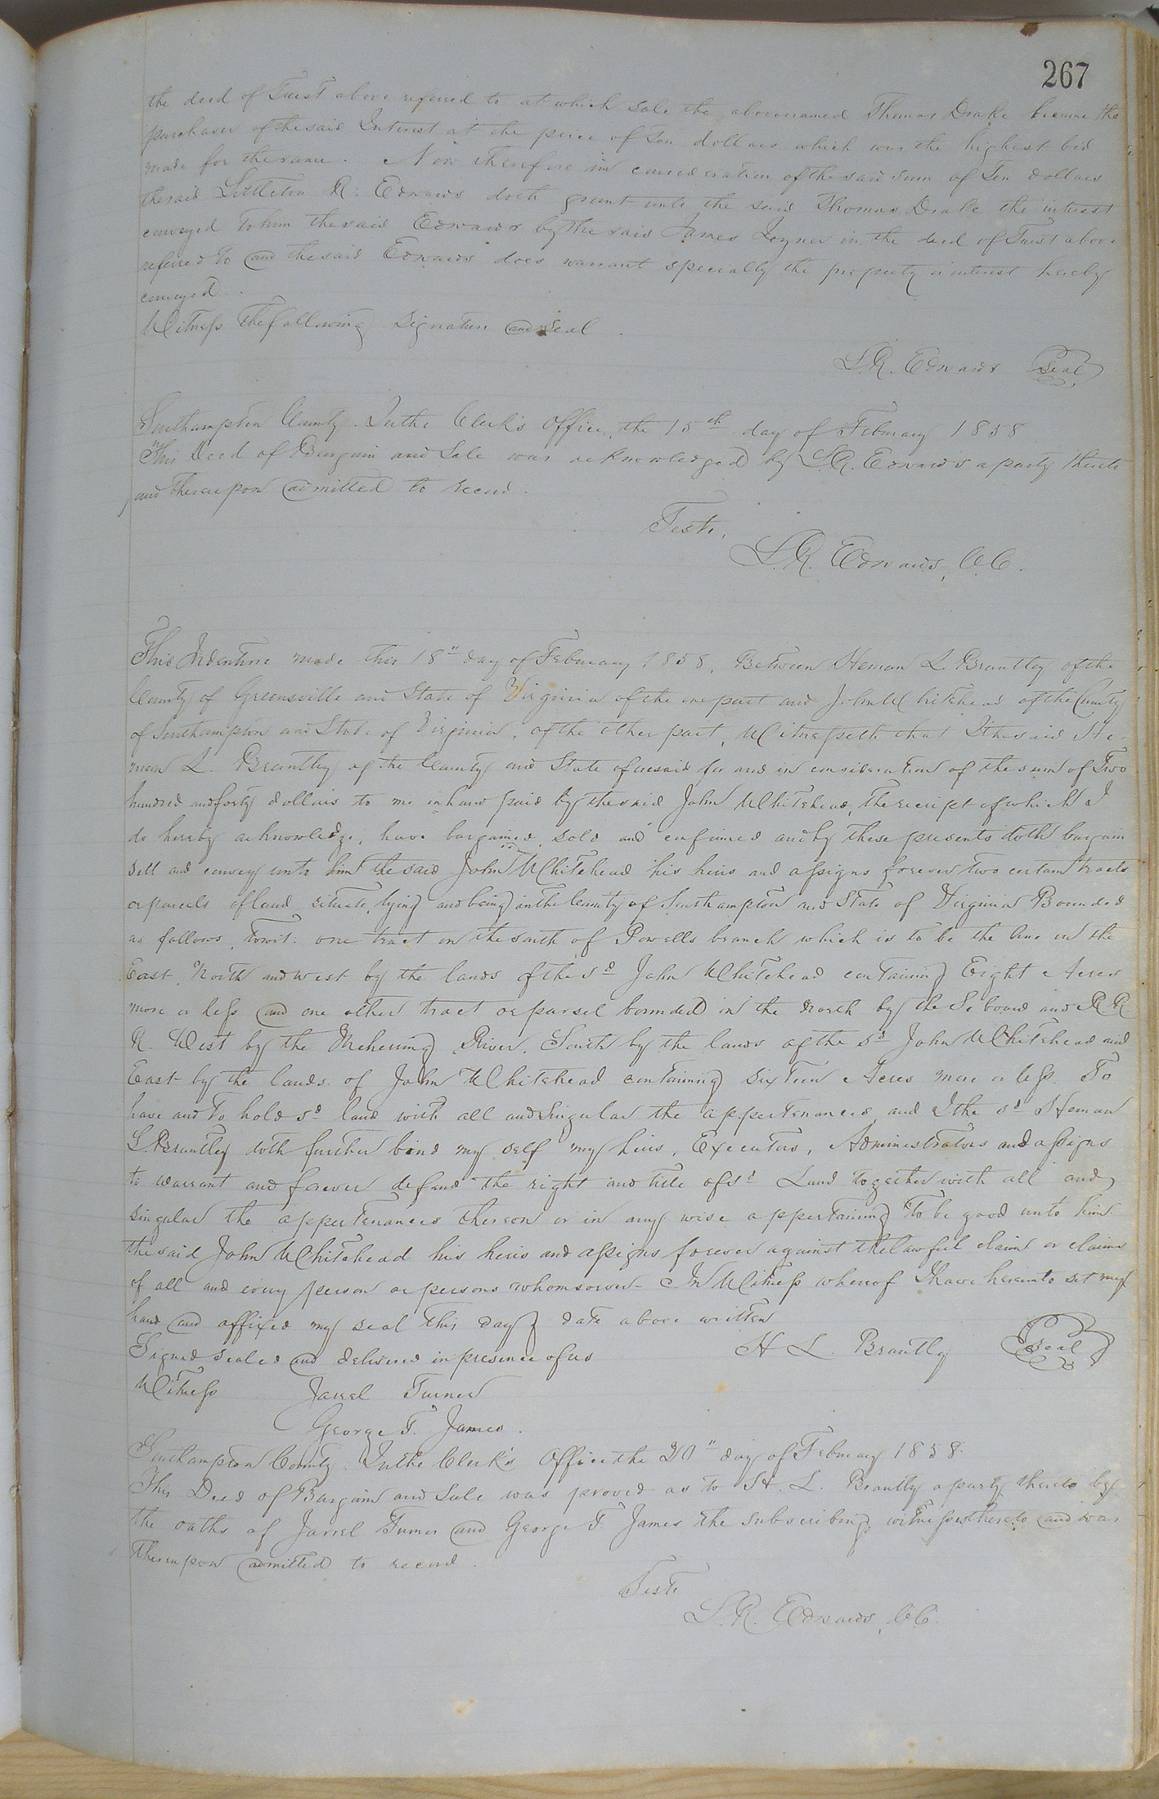 267
the deed of Trust above referred to at which sale the abovenamed Thomas Drake became the
purchaser of the said Interest at the price of Ten dollars which was the highest bid
made for the same. Now therefore in consideration of the said sum of Ten dollars
the said Littleton R. Edwards doth grant unto the said Thomas Drake the interest
conveyed to him the said Edwards by the said James Joyner in the deed of Trust above
referred to and the said Edwards does warrant specially the property or interest hereby
conveyed.
Witness the following signature and seal.
L. R. Edwards Seal
Southampton County. In the Clerk's Office, the 15th day of February 1858
This Deed of Bargain and Sale was acknowledged by L. R. Edwards a party thereto
and thereupon admitted to record.
Teste,
L. R. Edwards, C.C.
This Indenture made this 18" day of February 1858, Between Heman L. Brantley of the
County of Greensville and State of Virginia of the one part and John Whitehead of the County
of Southampton and State of Virginia, of the other part, Witnesseth that I the said He-
man L. Brantley of the County and State aforesaid for and in consideration of the sum of Two
hundred and forty dollars to me in hand paid by the said John Whitehead, the receipt of which I
do hereby acknowledge, have bargained, sold and confirmed and by these presents doth bargain
sell and convey unto him the said John Whitehead his heirs and assigns forever two certain tracts
or parcels of land, situate, lying and being in the County of Southampton and State of Virginia Bounded
as follows, Towit: one tract on the south of Powells branch which is to be the line on the
East, North and west by the lands of the sd John Whitehead containing Eight Acres
more or less and one other tract or parsel bounded on the north by the Seboard and R R
R. West by the Meherring River, South by the lands of the sd John Whitehead and
East by the lands of John Whitehead containing Sixteen Acres more or less To
have and To hold sd land with all and Singular the appertenances, and I the sd Heman
L. Brantley doth further bind my self my heirs, Executors, Administrators and assigns
to warrant and forever defend the right and title of sd Land together with all and
singular the appertenances thereon or in any wise appertaining To be good unto him
the said John Whitehead his heirs and assigns forever against the lawful claim or claims
of all and every person or persons whomsoever - In Witness whereof I have hereunto set my
hand and affixed my seal This day & date above written
Signed sealed and delivered in presence of us H L. Brantley Seal
Witness Jarrel Turner
George T. James.
Southampton County. In the Clerk's Office the 20" day of February 1858.
This Deed of Bargain and Sale was proved as to H. L. Brantly a party thereto by
the oaths of Jarrel Turner and George T. James the subscribing witnesses thereto and was
thereupon admitted to record.
Teste
L. R. Edwards, C.C.